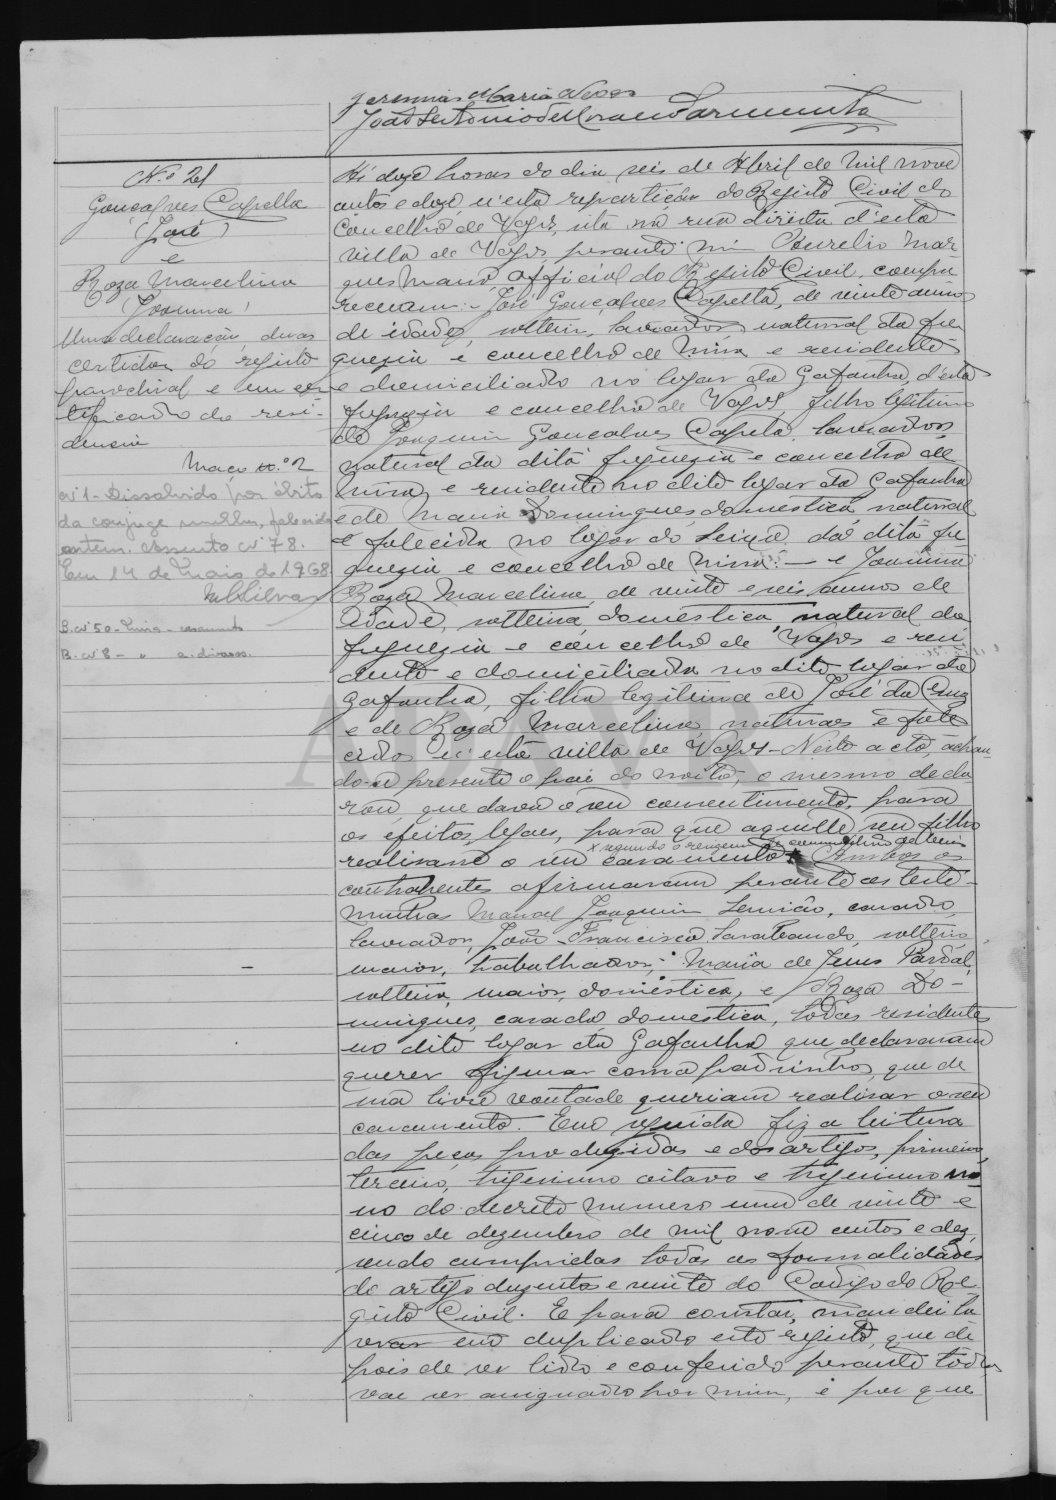 Jeremias Maria Neves
João Antonio de Moraes Sarmento
N.º 21
Gonçalves Capella
(José)
e
Roza Marcelina
Joanna
Uma declaração, duas
certidões do registo
parochial e um cer
tificado de resi-
dencia
Maço n.º 2
Nº 1 - Dissolvido por óbito
da conjuge mulher, falecida
ontem. Assento nº 78.
Em 14 de Maio de 1968
MSilva
B. nº 50 - Mira - casamento
B. nº 8 - " a. diversos.
Ás doze horas do dia seis de Abril de mil nove
centos e doze, n'esta repartição do Registo Civil do
Concelho de Vagos, sita na rua direita d'esta
villa de Vagos, perante mim Aurelio Mar
ques Mano, official do Registo Civil, compa
receram: - José Gonçalves Capella, de vinte annos
de idade, solteiro, lavrador, natural da fre
guezia e concelho de Mira e residente
e domiciliado no logar da Gafanha, d'esta
freguezia e concelho de Vagos, filho legitimo
de Joaquim Gonçalves Capela, lavrador,
natural da dita freguezia e concelho de
Mira, e residente no dito logar da Gafanha
e de Maria Domingues, domestica, natural
e falecida no logar do Seixo, da dita fre
guezia e concelho de Mira: — e Joanna
Roza Marcelina, de vinte e seis annos de
idade, solteira, domestica, natural da
freguezia e concelho de Vagos e resi
dente e domiciliada no dito logar da
Gafanha, filha legitima de José da Cruz
e de Roza Marcelina, naturaes e fale
cidos n'esta villa de Vagos - Neste acto, achan
do-se presente o pai do noivo, o mesmo decla
rou, que dava o seu consentimento, para
os efeitos legaes, para que aquelle seu filho
realisasse o seu casamento x segundo o regimen de communhão de bens Ambos os
contrahentes afirmaram perante as teste-
munhas Manoel Joaquim Servião, casado,
lavrador, João Francisco Sarabando, solteiro,
maior, trabalhador, Maria de Jesus Pardal,
solteira, maior, domestica, e Roza Do-
mingues, casada, domestica, todos residentes
no dito logar da Gafanha, que declararam
querer figurar como padrinhos, que de
sua livre vontade queriam realisar o seu
casamento. Em seguida fiz a leitura
das peças produzidas e dos artigos, primeiro,
terceiro, trigesimo oitavo e trigesimo no
no do decreto numero um de vinte e
cinco de dezembro de mil nove centos e dez,
sendo cumpridas todas as formalidades
do artigo duzentos e vinte do Codigo do Re-
gisto Civil. E para constar, mandei la
vrar em duplicado este registo, que de
pois de ser lido e conferido perante todos,
vae ser assignado por mim, e por que
ADAVR